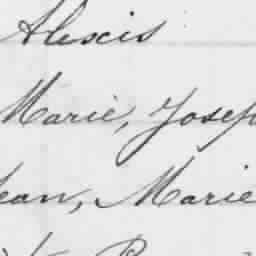 Alexis
Marie, Josep
ean, Marie